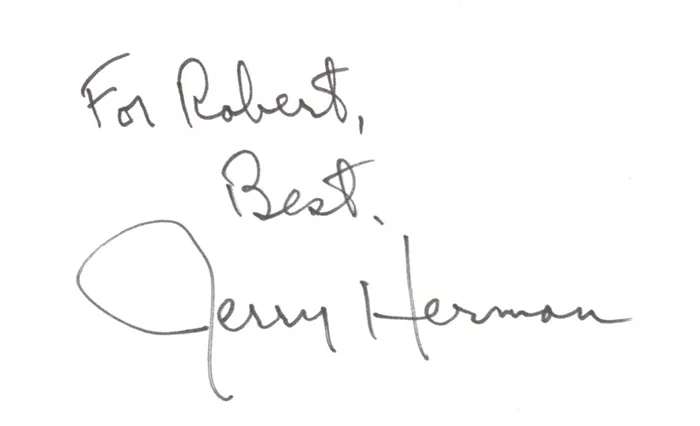 For Robert,
Best.
Jerry Herman